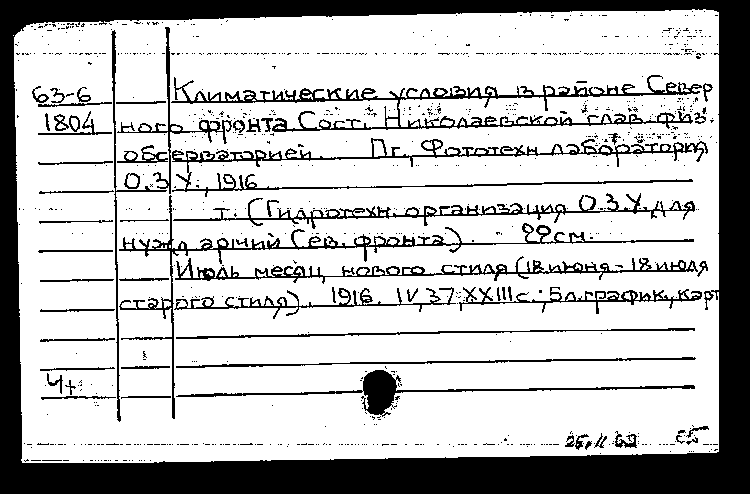 63-6 Климатические условия в районе Север
1804 ного фронта Сост. Николаевской глав. физ.
обсерваторией. Пг., Фототехн лаборатория
О.З.У., 1916
т. (Гидротехн. организация О.З.У. для
нужд армий Сев. фронта). 22см.
Июль месяц нового стиля (18 июня - 18 июля
старого стиля). 1916. IV, 37, XXIII с.; 5л. график., карт
4+
25.11 63